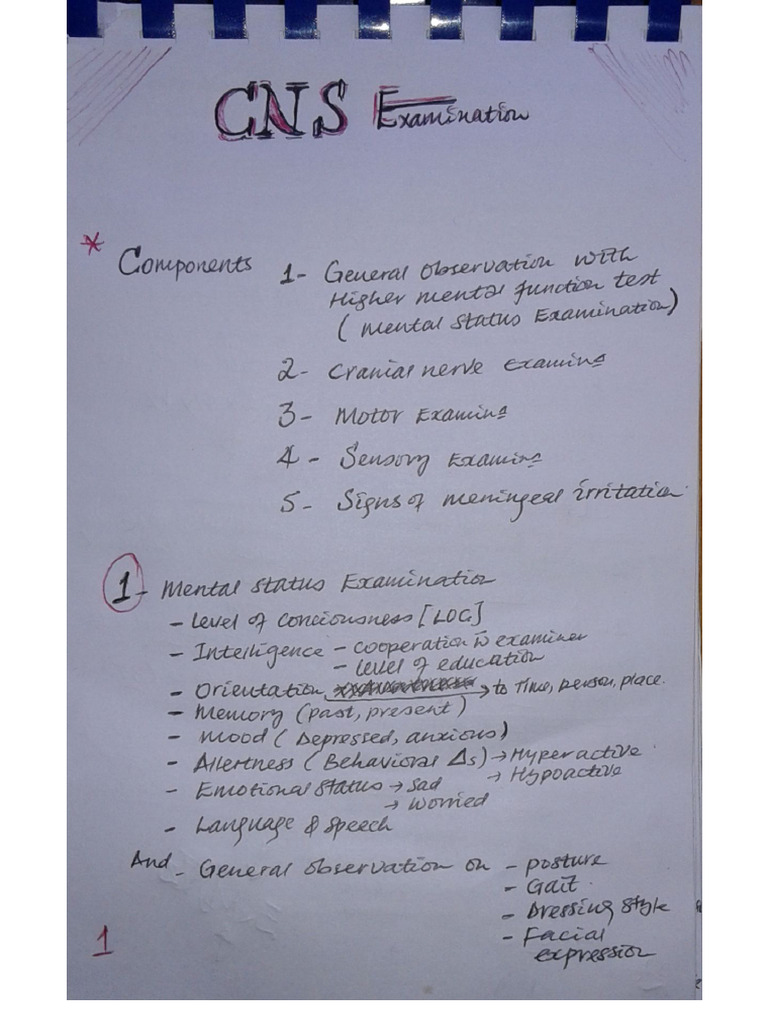 CNS Examination
* Components 1- General observation with
Higher mental function test
(Mental Status Examination)
2- Cranial nerve Examinⁿ
3- Motor Examinⁿ
4- Sensory Examinⁿ
5- Signs of meningeal irritation.
1- Mental Status Examination
- Level of Conciousness [LOC]
- Intelligence - cooperation to examiner
- level of education
- Orientation → to Time, person, place.
- Memory (past, present)
- Mood (Depressed, anxious)
- Allertness (Behavioral Δs) → Hyperactive
→ Hypoactive
- Emotional Status → Sad
→ Worried
- Language & Speech
And - General observation on - posture
- Gait.
- Dressing style
- Facial
expression
1